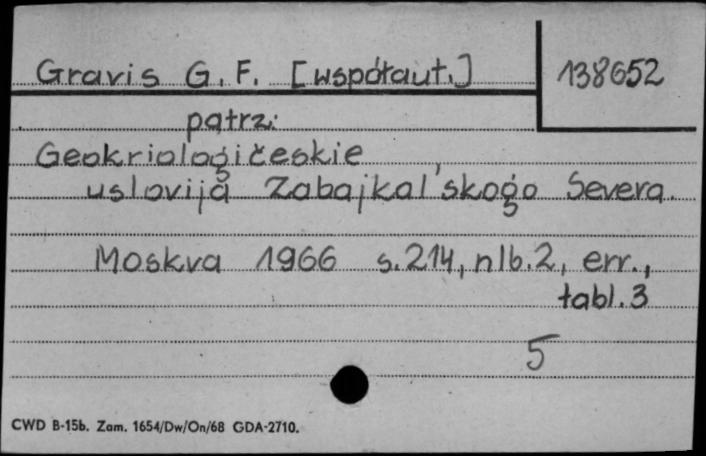 Gravis G. F. [współaut.]
138652
patrz:
Geokriologičeskie
uslovija Zabajkal'skogo Severa.
Moskva 1966 s. 214, nlb. 2, err.,
tabl. 3
5
CWD B-15b. Zam. 1654/Dw/On/68 GDA-2710.